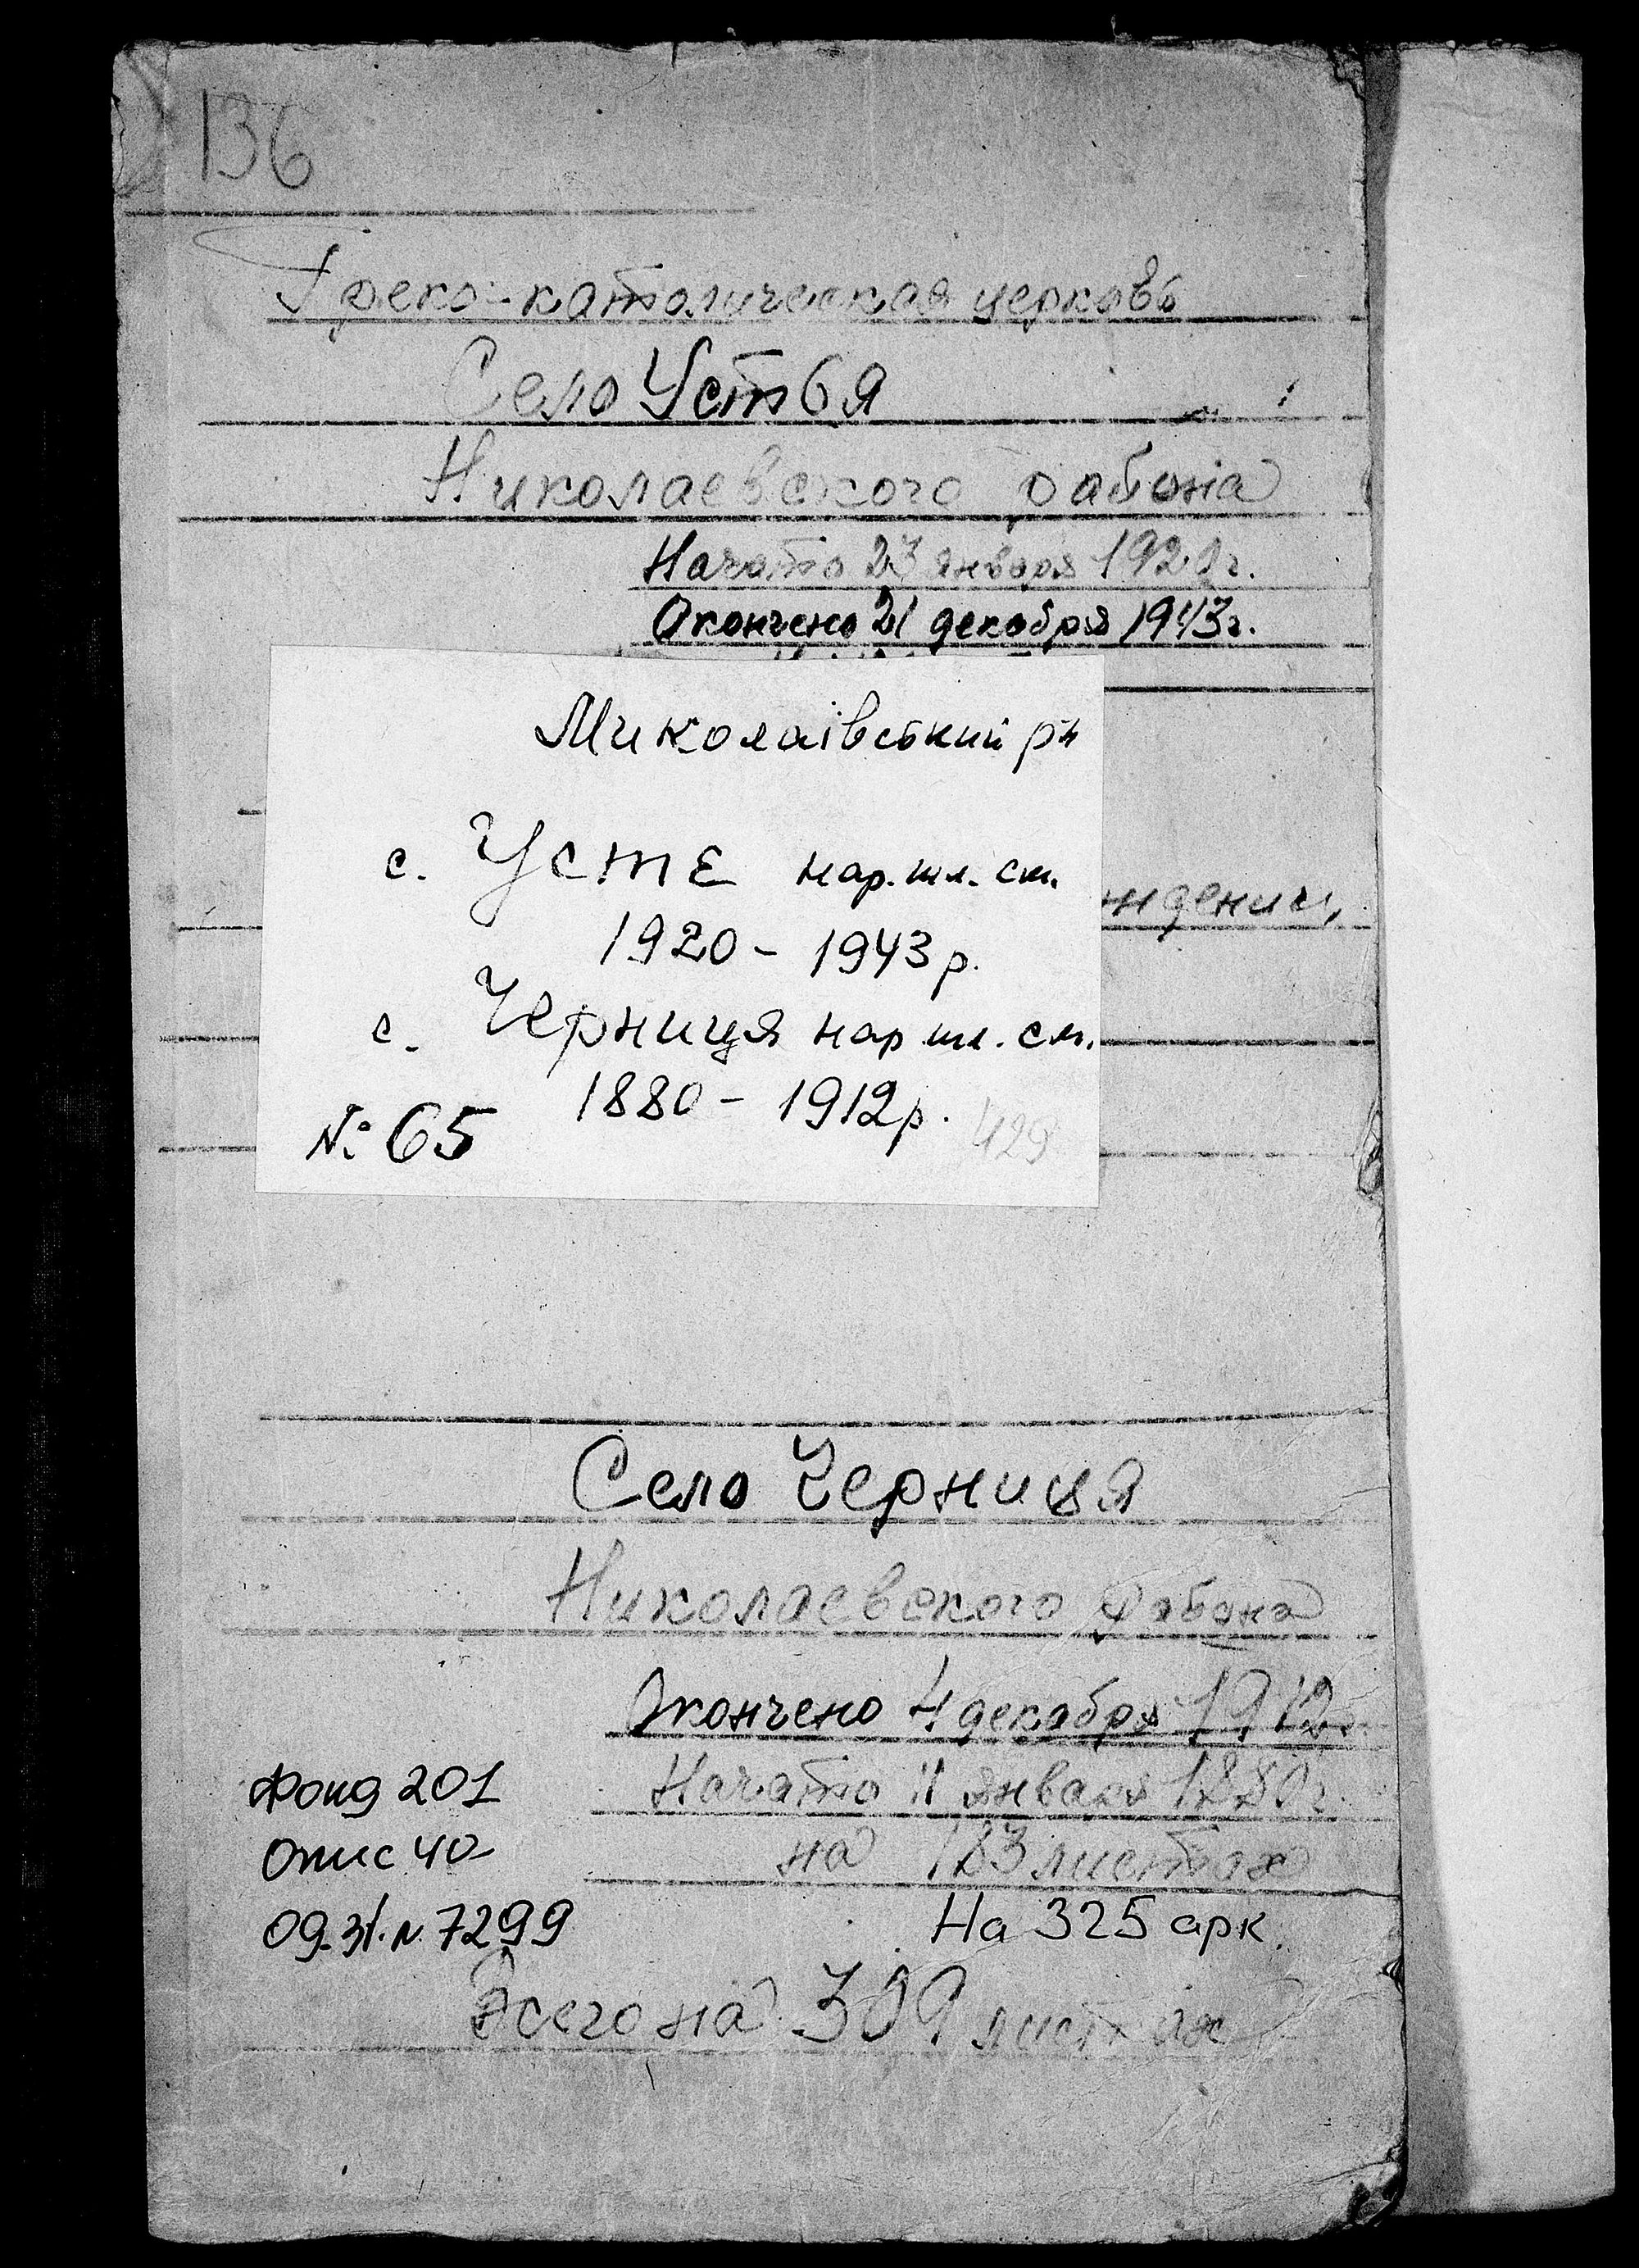 136
Греко-католическая церковь
Село Устья
Николаевского района
Начато 23 января 1920г.
Окончено 21 декабря 1943г.
Миколаївський р-н
с. Устє нар. шл. см.
ждении,
1920 - 1943 р.
с. Черниця нар шл. см.
1880 - 1912 р.
№ 65
429
Село Черниця
Николаевского района
Окончено 4 декабря 1912г.
Фонд 201
Начато 11 января 1880г.
Опис 4а
на 183 листах
од. зб. N 7299
На 325 арк.
Всего на 309 листах